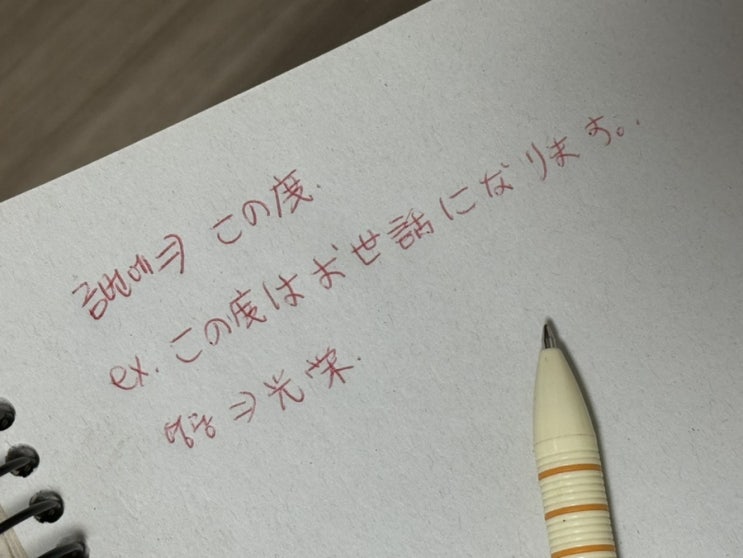 금번에⇒ この度.
ex. この度はお世話になります。.
영광⇒光栄.